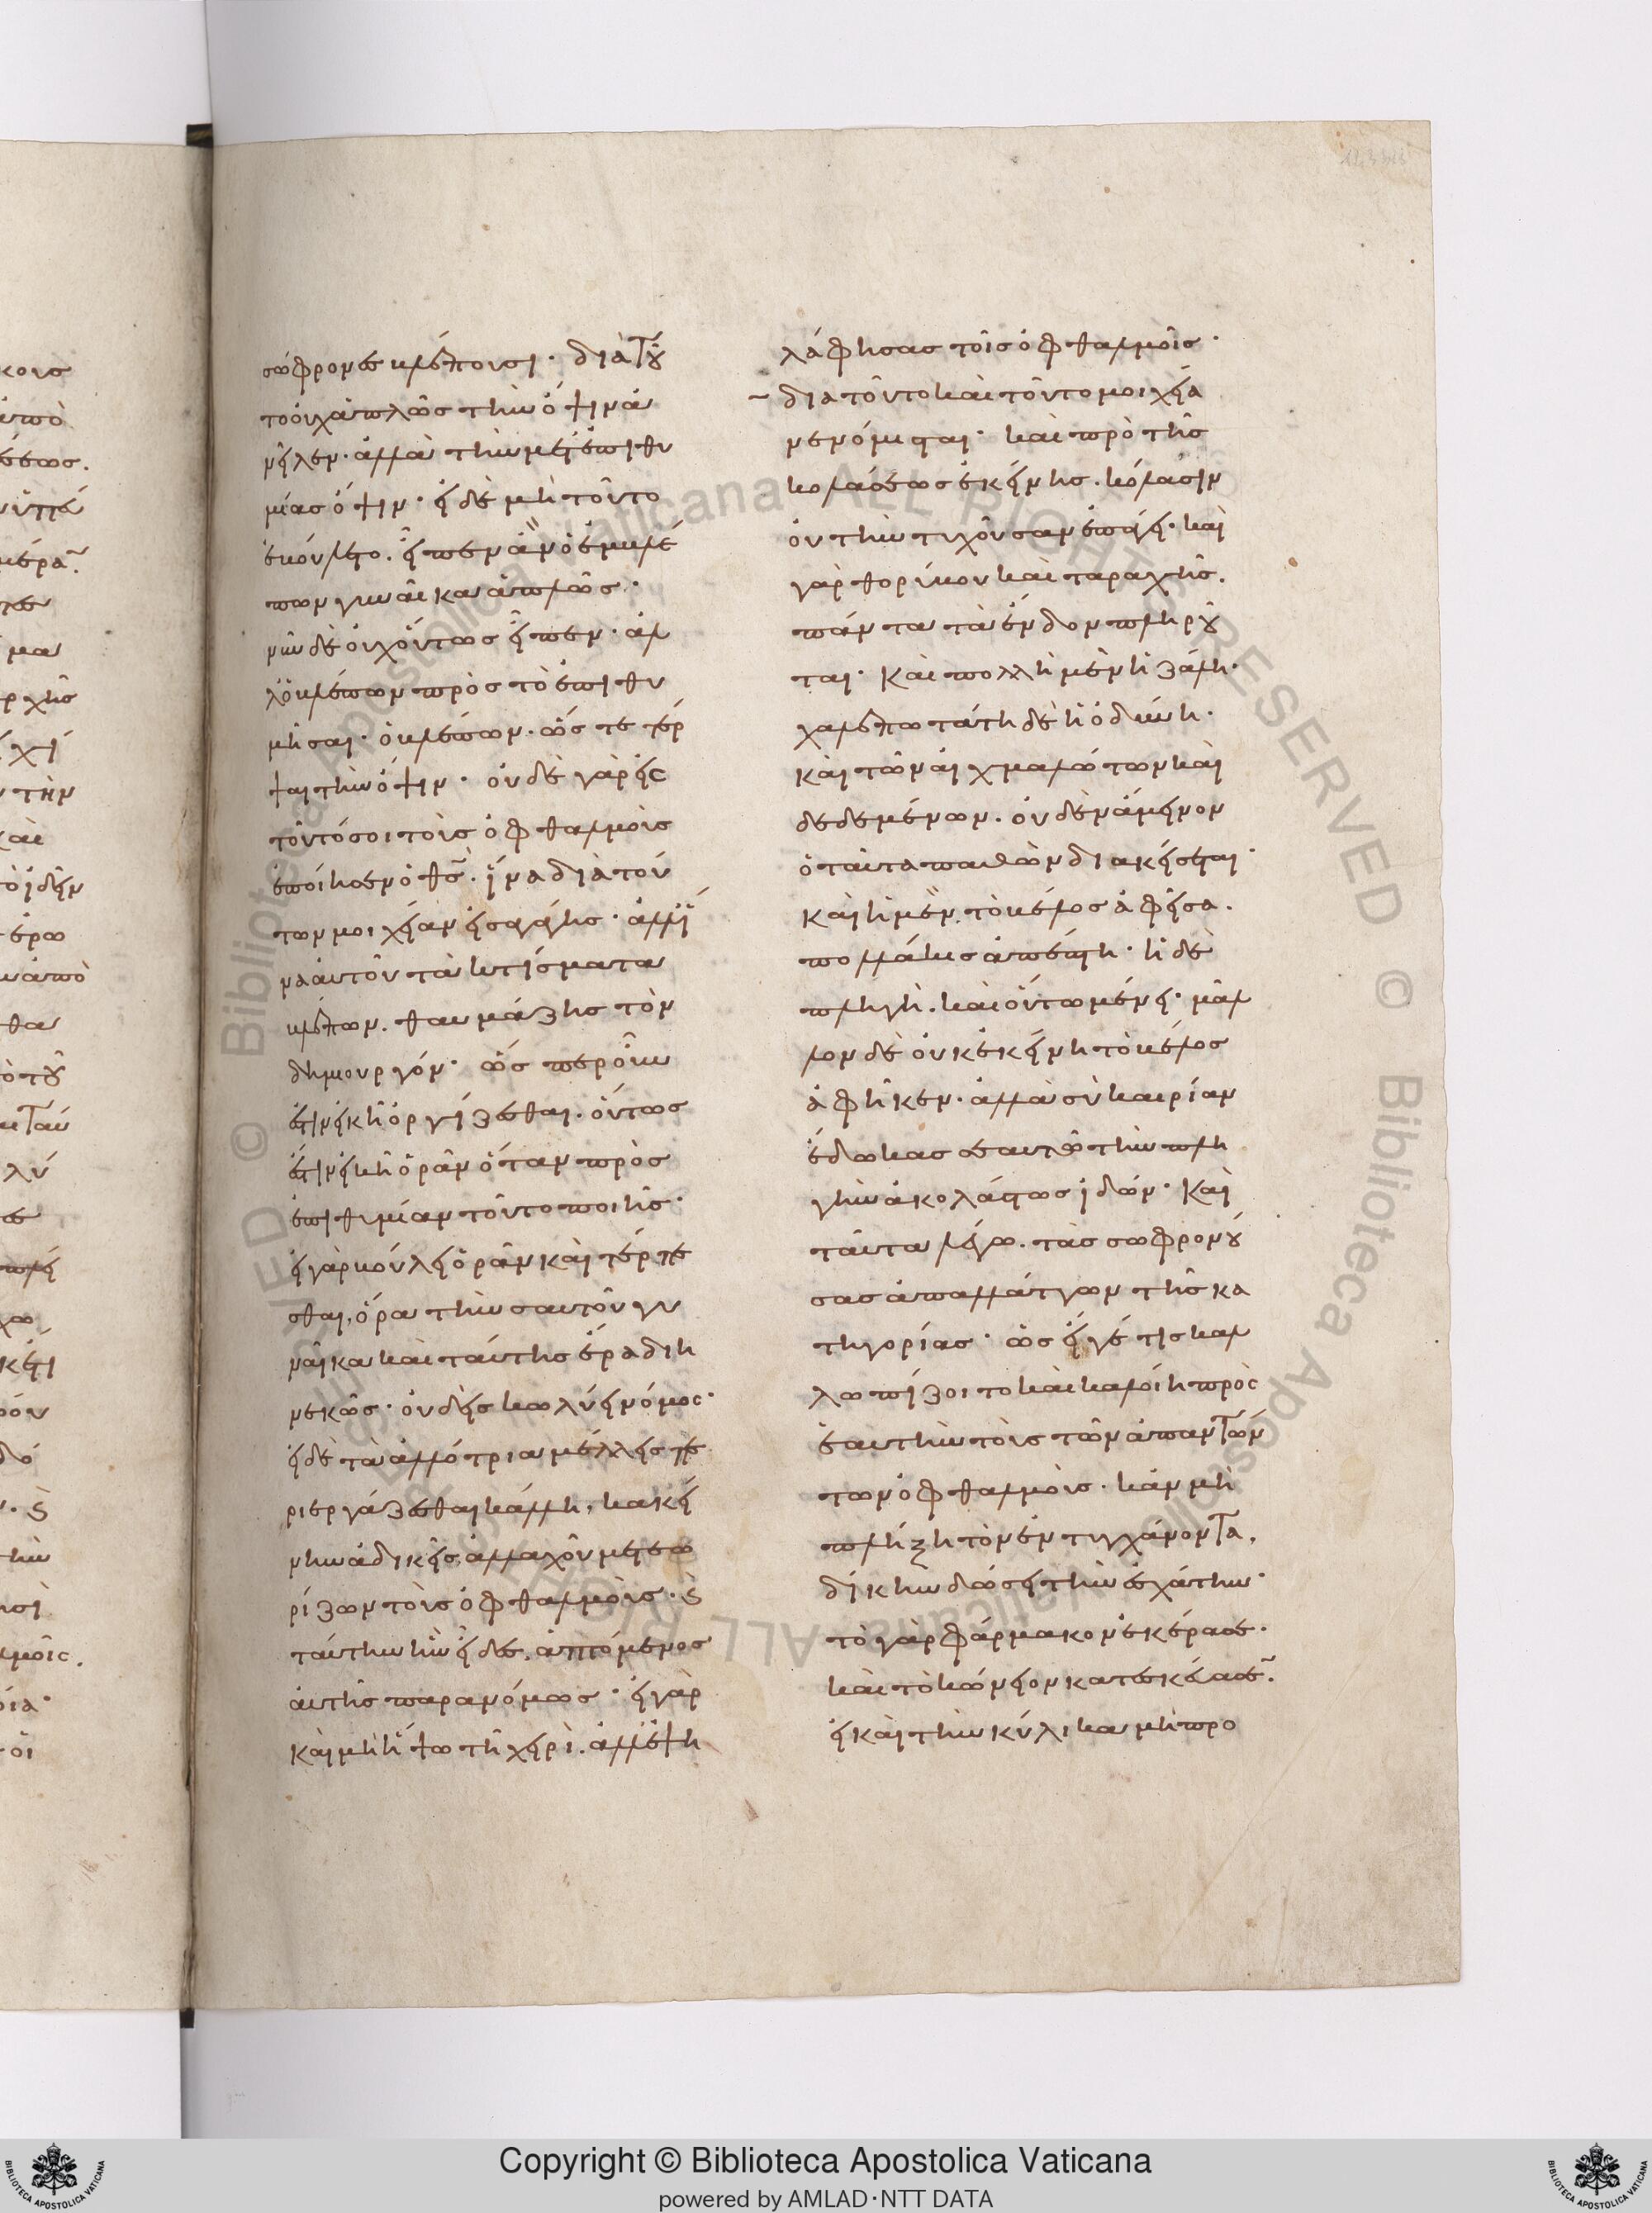 σώφρονες βλέπουσι· διὰ τοῦ
το οὐχ ἁπλῶς τὴν ὄψιν ἀ
νεῖλεν· ἀλλὰ τὴν μετ' ἐπιθυ
μίας ὄψιν· εἰ δὲ μὴ τοῦτο
ἐβούλετο. εἶπεν ἂν ὁ ἐμβλέ
πων γυναῖκα ἁπλῶς·
νῦν δὲ οὐχ οὕτως εἶπεν· ἀλ
λ' ὁ βλέπων πρὸς τὸ ἐπιθυ
μῆσαι· ὁ βλέπων. ὥστε τέρ
ψαι τὴν ὄψιν· οὐδὲ γὰρ εἰς
τοῦτό σοι τοὺς ὀφθαλμοὺς
ἐποίησεν ὁ θς. ἵνα διὰ τού
των μοιχείαν εἰσαγάγης· ἀλλ' ἵ
να αὐτοῦ τὰ κτίσματα
βλέπων. θαυμάζης τὸν
δημιουργόν· ὥσπερ οὖν
ἔστιν εἰκῆ ὀργίζεσθαι. οὕτως
ἔστιν εἰκῆ ὁρᾶν ὅταν πρὸς
ἐπιθυμίαν τοῦτο ποιῆς·
εἰ γὰρ βούλει ὁρᾶν καὶ τέρπε
σθαι, ὅρα τὴν σαυτοῦ γυ
ναῖκα καὶ ταύτης ἔρα διη
νεκῶς· οὐδεὶς κωλύει νόμος·
εἰ δὲ τὰ ἀλλότρια μέλλεις πε
ριεργάζεσθαι κάλλη, κακεί
νην ἀδικεῖς, ἀλλαχοῦ μετεω
ρίζων τοὺς ὀφθαλμοὺς· καὶ
ταύτην ἣν εἶδες, ἁπτόμενος
αὐτῆς παρανόμως· εἰ γὰρ
καὶ μὴ ἥψω τῆ χειρὶ. ἀλλ' ἐψη
λάφησας τοῖς ὀφθαλμοῖς·
διὰ τοῦτο καὶ τοῦτο μοιχεία
νενόμισται· καὶ πρὸ τῆς
κολάσεως ἐκείνης. κόλασιν
οὐ τὴν τυχοῦσαν ἐπάγει· καὶ
γὰρ θορύβου καὶ ταραχῆς.
πάντα τὰ ἔνδον πληροῦ
ται· καὶ πολλὴ μὲν ἡ ζάλη·
χαλεπωτάτη δὲ ἡ ὀδύνη·
καὶ τῶν αἰχμαλώτων καὶ
δεδεμένων. οὐδὲν ἄμεινον
ὁ ταῦτα παθὼν διακείσεται·
καὶ ἡ μὲν τὸ βέλος ἀφεῖσα.
πολλάκις ἀπέστη· ἡ δὲ
πληγὴ. καὶ οὕτω μένει· μᾶλ
λον δὲ οὐκ ἐκείνη τὸ βέλος
ἀφῆκεν. ἀλλὰ σὺ καιρίαν
ἔδωκας σεαυτῶ τὴν πλη
γὴν ἀκολάστως ἰδών· καὶ
ταῦτα λέγω. τὰς σωφρονού
σας ἀπαλλάττων τῆς κα
τηγορίας· ὡς εἴγέ τις καλ
λωπίζοιτο καὶ καλοίη πρὸς
ἑαυτὴν τοὺς τῶν ἀπαντών
των ὀφθαλμοὺς. κἂν μὴ
πλήξη τὸν ἐντυγχάνοντα.
δίκην δώσει τὴν ἐσχάτην·
τὸ γὰρ φάρμακον ἐκέρασε·
καὶ τὸ κώνειον κατεσκεύασε.
εἰ καὶ τὴν κύλικα μὴ προ